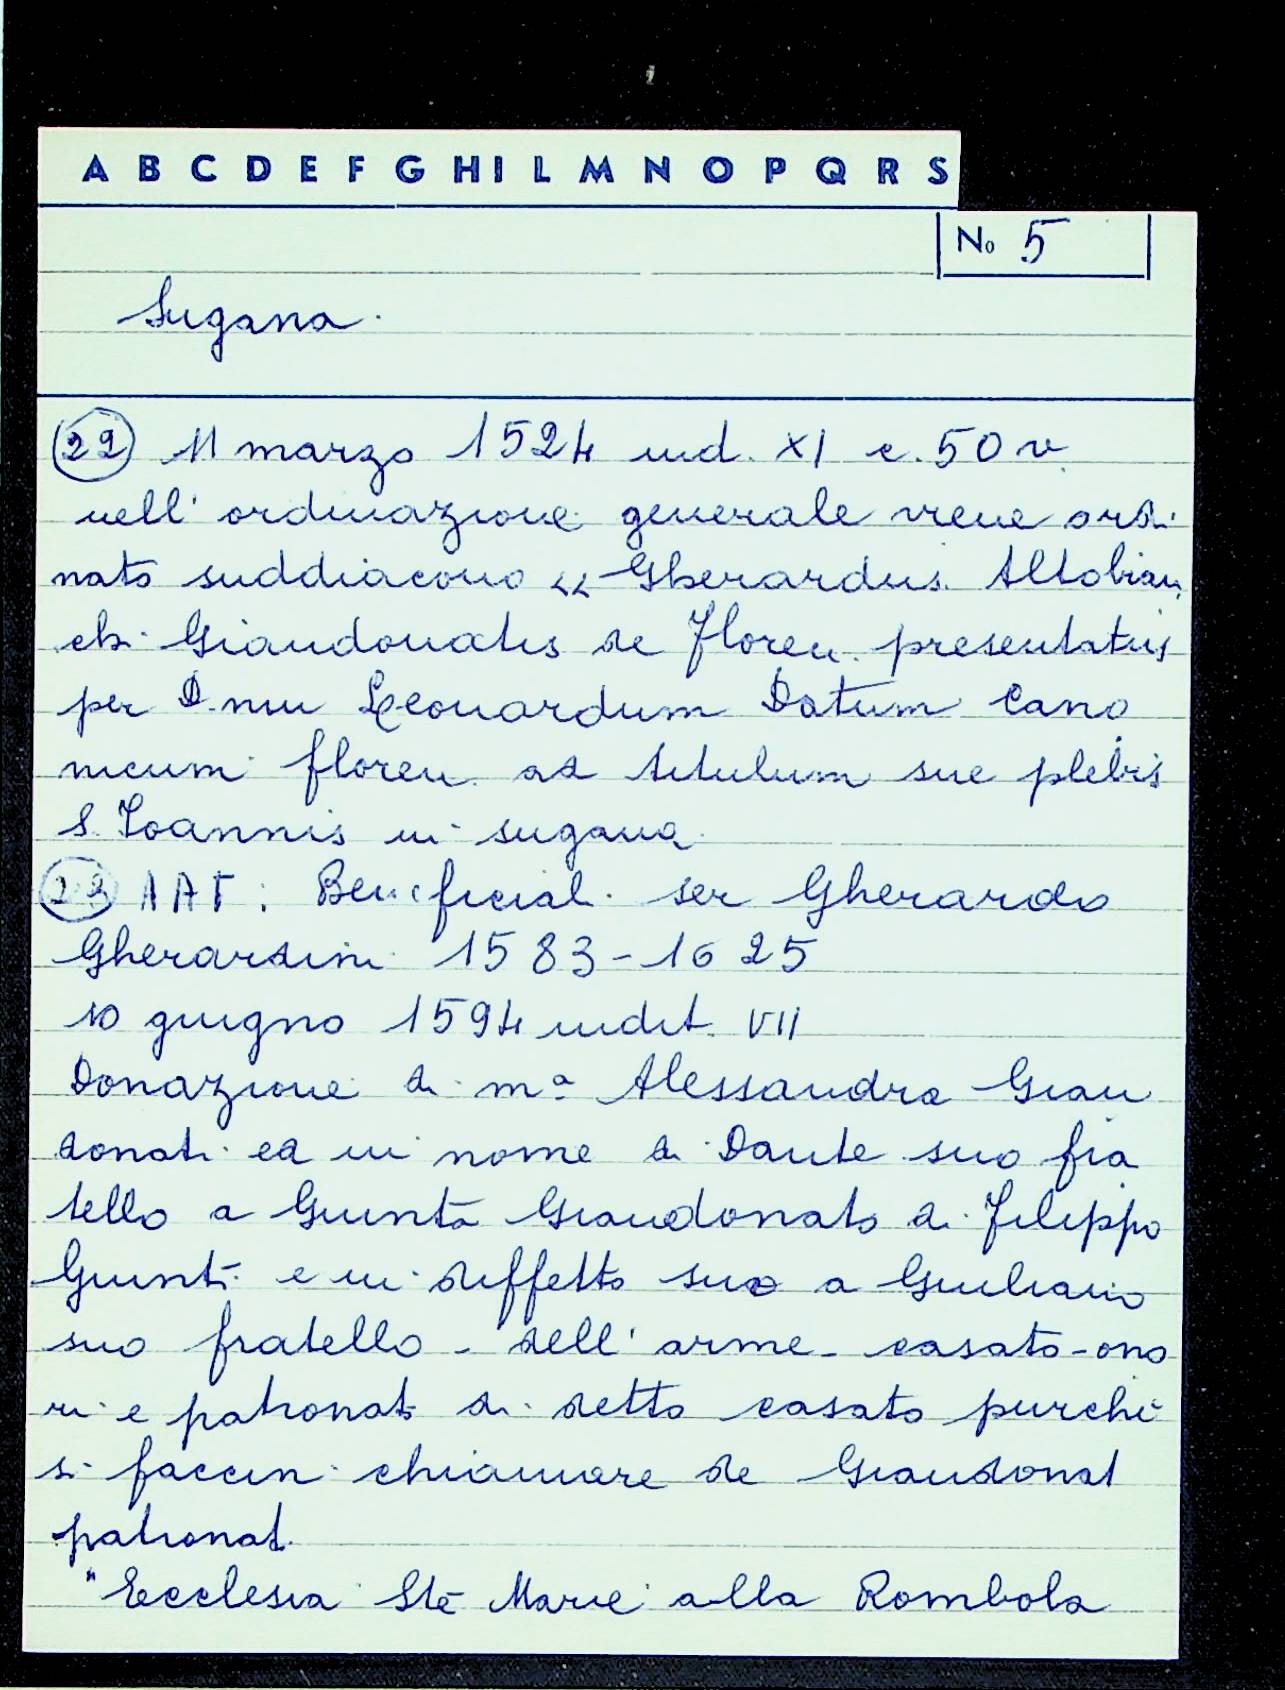 A B C D E F G H I L M N O P Q R S
No 5
Sugana.
22 11 marzo 1524 ind. XI c. 50 v
nell' ordinazione generale viene ordi
nato suddiacono << Gherardus Altobian
chi Giandonatis de Floren. presentatus
per D.num Leonardum Datum Cano
nicum floren. ad titulum sue plebis
S. Ioannis in sugana
23 AAF: Beneficial. ser Gherardo
Gherardini 1583-1625
10 giugno 1594 indit. VII
Donazione di mª Alessandra Gian
donati ed in nome di Dante suo fra
tello a Giunta Giandonato di Filippo
Giunti e in diffetto suo a Giuliano
suo fratello - dell' arme - casato - ono
ri e patronati di detto casato purchè
si faccin chiamare de Giandonat
patronat.
"Ecclesia Ste Marie alla Rombola